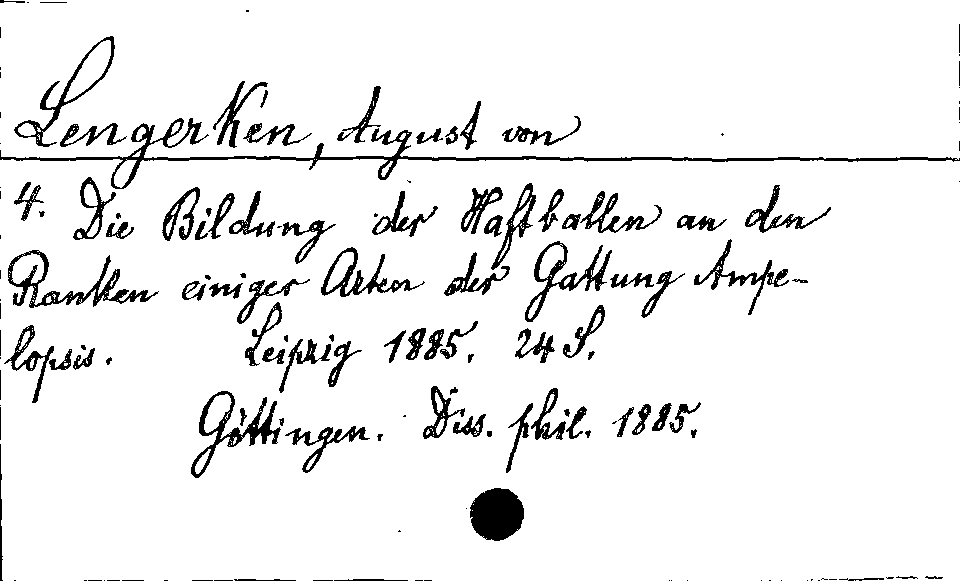 Lengerken, August von
4. Die Bildung der Haftballen an den
Ranken einiger Arten der Gattung Ampe-
lopsis. Leipzig 1885. 24 S.
Göttingen. Diss. phil. 1885.